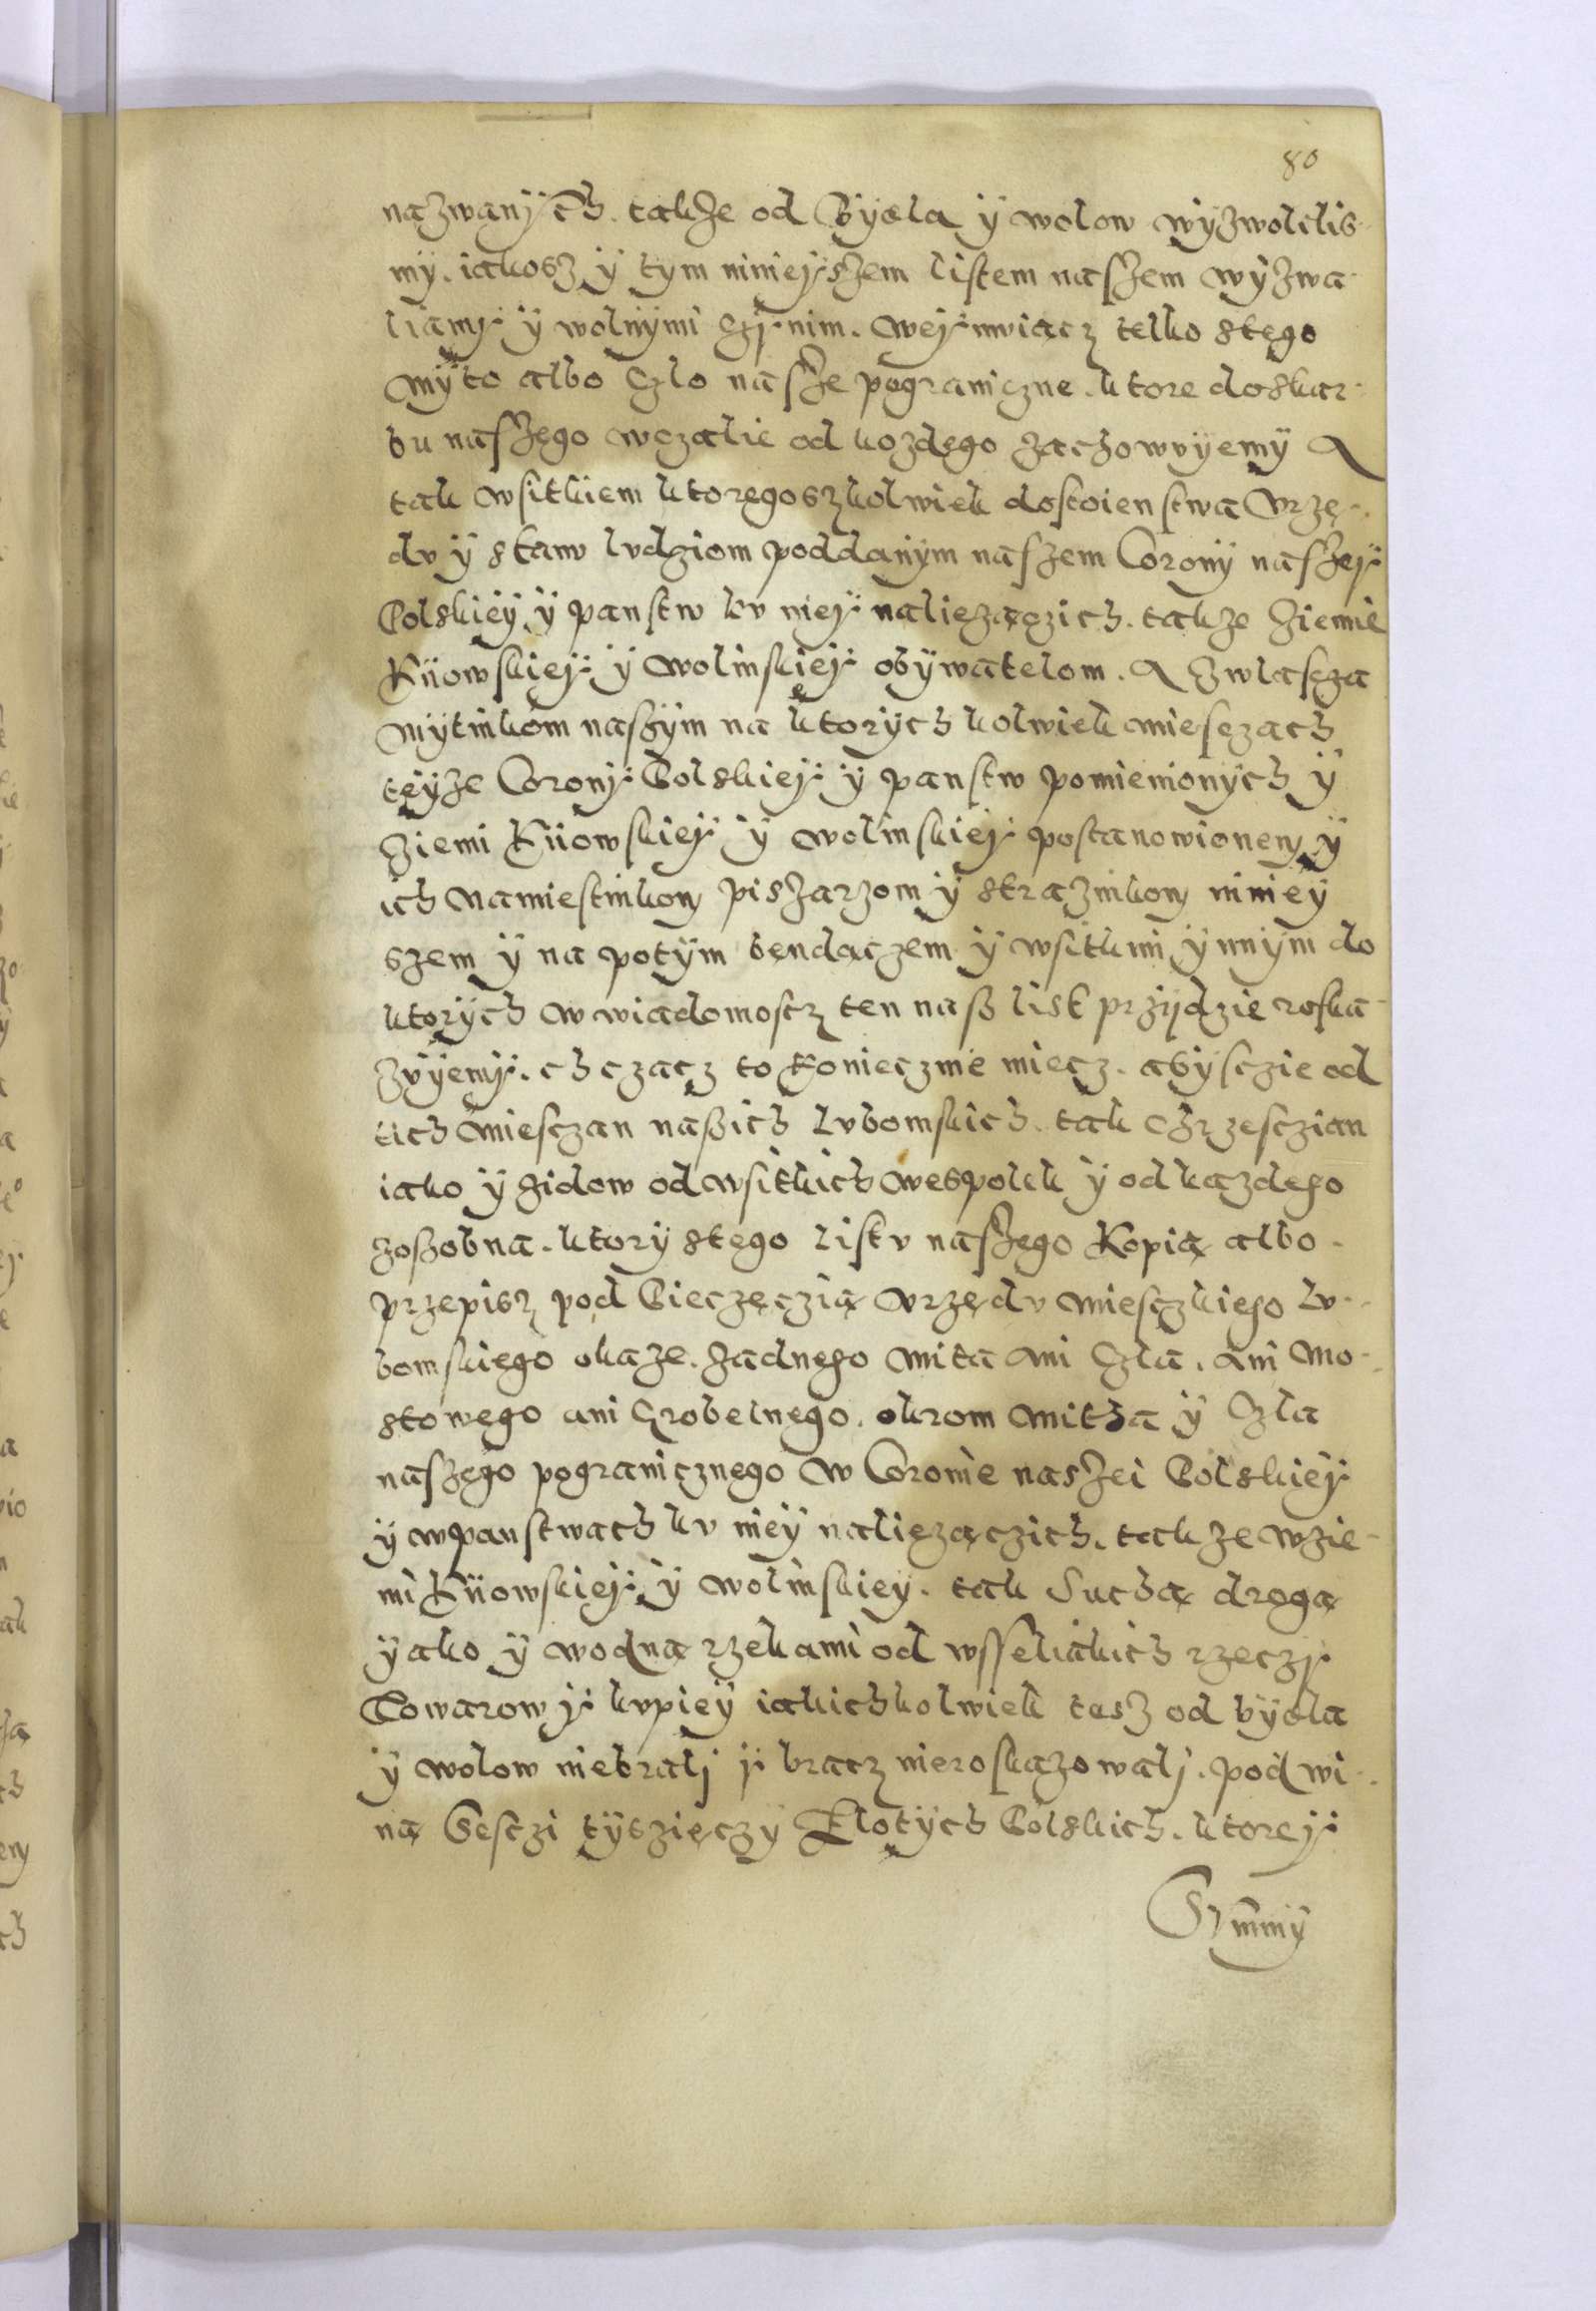 80
nazwanÿch. takze od Bÿdla ÿ wolow wÿzwolilis-
mÿ. iakosz ÿ tym miniejszem listem naszem wÿzwa-
liamÿ ÿ wolnÿmi czÿnim. wejmuiącz telko stego
mÿto albo Czlo nasze pograniczne. ktore doskar-
bu naszego wczalie od kozdego zachowuÿemÿ A
tak wsitkiem ktoregoszkolwiek dostoienstwa Vrzę-
dv ÿ stanv lvdziom poddanÿm naszem Coronÿ naszeÿ
Polskieÿ ÿ panstw kv nieÿ naliezączich. takze Ziemie
Kÿowskieÿ ÿ wolinskieÿ obÿwatelom. A Zwlascza
mÿtnikom naszÿm na ktorÿch kolwiek miesczach
teÿze Coronÿ Polskieÿ ÿ panstw pomienionÿch ÿ
Ziemi Kÿowskieÿ ÿ wolinskieÿ postanowionem ÿ
ich Namiestnikom piszarzom ÿ straznikom niniey
szem ÿ na potÿm bendączem ÿ wsitkim ÿnnÿm do
ktorÿch w wiadomoscz ten nasz list przÿdzie roska-
zvÿemÿ. chczacz to koniecznie miecz. abÿsczie od
tich miesczan naszich Lvbomskich. tak Chrzesczian
iako ÿ zidow od wsitkich wespolek ÿ od kazdego
zoszobna. ktorÿ stego listv naszego Kopią albo
przepisz pod Pieczęczią Vrzędv miesczkiego Lv-
bomskiego okaze. zadnego mita ani Czla. ani mo-
stowego ani Grobelnego. okrom mitha ÿ Czla
naszego pogranicznego w Coronie naszei Polskieÿ
ÿ wpanstwach kv nieÿ naliezączich. takze wzie-
mi Kÿowskieÿ ÿ wolinskieÿ. tak Suchą drogą
ÿako ÿ wodną rzekami od wsseliakich rzeczÿ
Towarow ÿ kvpieÿ iakichkolwiek tesz od bÿdla
ÿ wolow niebralj ÿ bracz nieroskazowalj. pod wi-
ną Sesczi tÿszięczÿ Zlotÿch Polskich. ktoreÿ
Svmmÿ